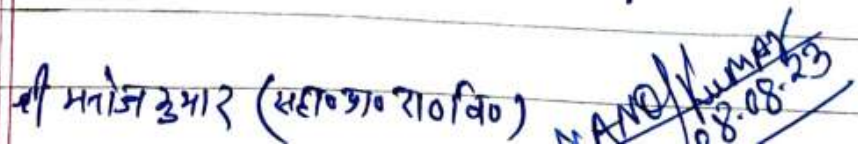 श्री मनोज कुमार (सहा० प्रा० रा० वि०)
MANOJ KUMAR
08.08.23